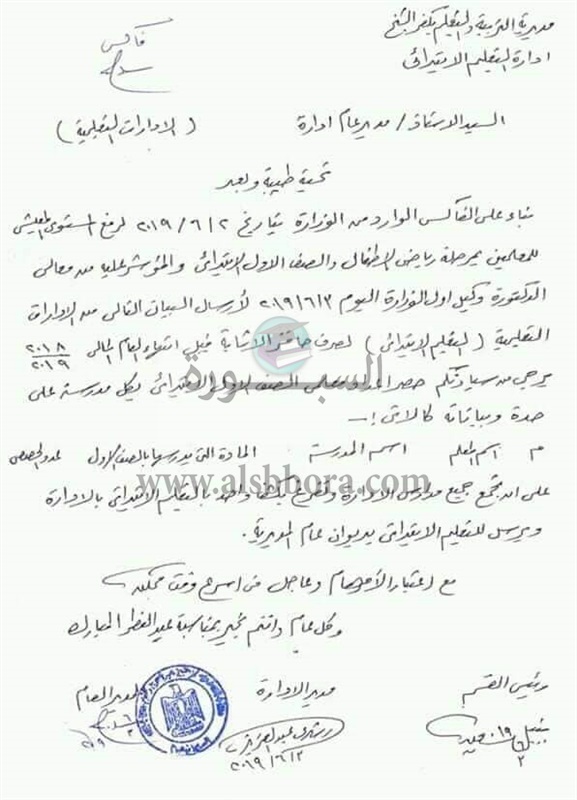 مديرية التربية والتعليم بكفر الشيخ
ادارة التعليم الابتدائى
فاكس
السيد الاستاذ / مدير عام ادارة ( الادارات التعليمية )
تحية طيبة وبعد
بناء على الفاكس الوارد من الوزارة بتاريخ ٢٠١٩/٦/٢ لرفع المستوى المعيشى
للمعلمين بمرحلة رياض الاطفال والصف الاول الابتدائى والمؤشر عليه من معالى
الدكتورة وكيل اول الوزارة اليوم ٢٠١٩/٦/٣ لأرسال البيان التالى من الادارات
التعليمية ( التعليم الابتدائى ) لصرف حافز الاثابة قبل انتهاء العام المالى ٢٠١٨/٢٠١٩
يرجى من سيادتكم حصر اعداد معلمى الصف الاول الابتدائى بكل مدرسة على
حدة وبياناته كالاتى :-
م اسم المعلم اسم المدرسة المادة التى يدرسها بالصف الاول عدد الحصص
على ان تجمع جميع مدارس الادارة بكشف واحد بالتعليم الابتدائى بالادارة
ويرسل للتعليم الابتدائى بديوان عام المديرية .
مع اعتبار الأمر هام وعاجل فى اسرع وقت ممكن
وكل عام وانتم بخير بمناسبة عيد الفطر المبارك
رئيس القسم مدير الادارة المدير العام
٢٠١٩/٦/٣
السبورة
www.alshbora.com